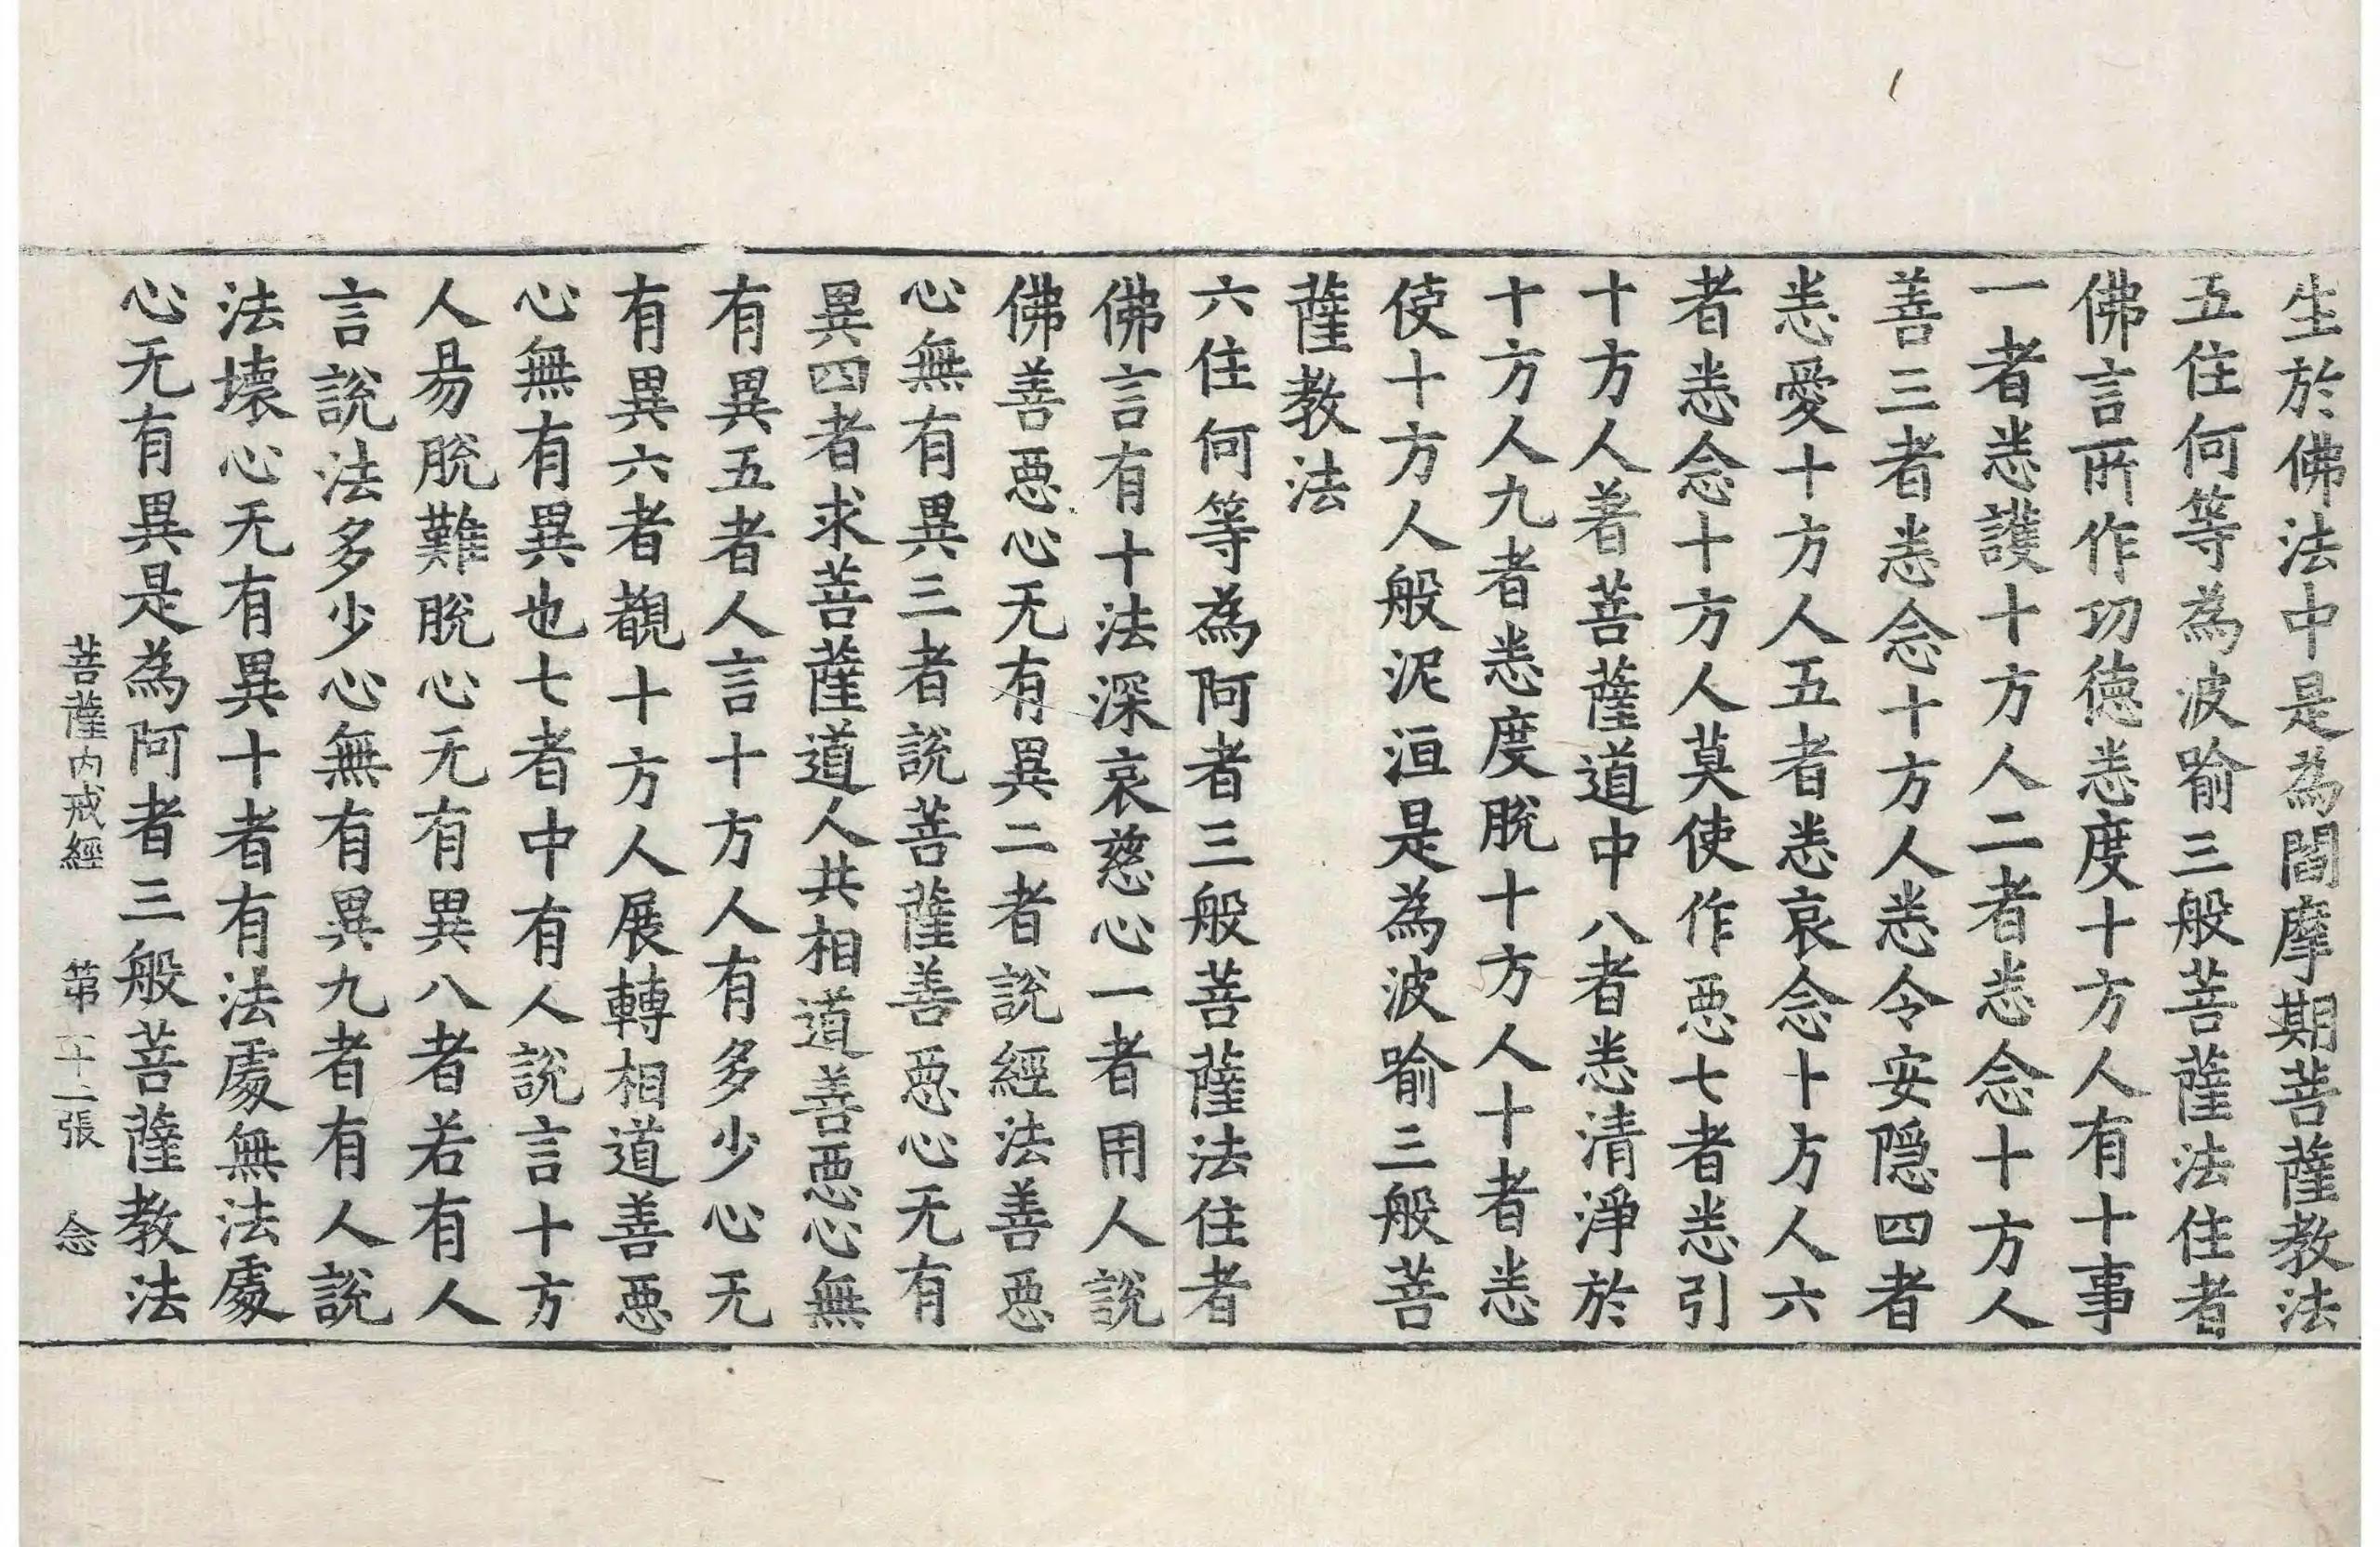 生於佛法中是為閻摩期菩薩教法
五住何等為波喻三般菩薩法住者
佛言所作功德悉度十方人有十事
一者悉護十方人二者悉念十方人
善三者悉念十方人悉令安隱四者
悉愛十方人五者悉哀念十方人六
者悉念十方人莫使作惡七者悉引
十方人著菩薩道中八者悉清淨於
十方人九者悉度脫十方人十者悉
使十方人般泥洹是為波喻三般菩
薩教法
六住何等為阿耆三般菩薩法住者
佛言有十法深哀慈心一者用人說
佛善惡心无有異二者說經法善惡
心無有異三者說菩薩善惡心无有
異四者求菩薩道人共相道善惡心無
有異五者人言十方人有多少心无
有異六者觀十方人展轉相道善惡
心無有異也七者中有人說言十方
人昜脫難脫心无有異八者若有人
言說法多少心無有異九者有人說
法壞心无有異十者有法處無法處
心无有異是為阿耆三般菩薩教法
菩薩內戒經 第十二張 念